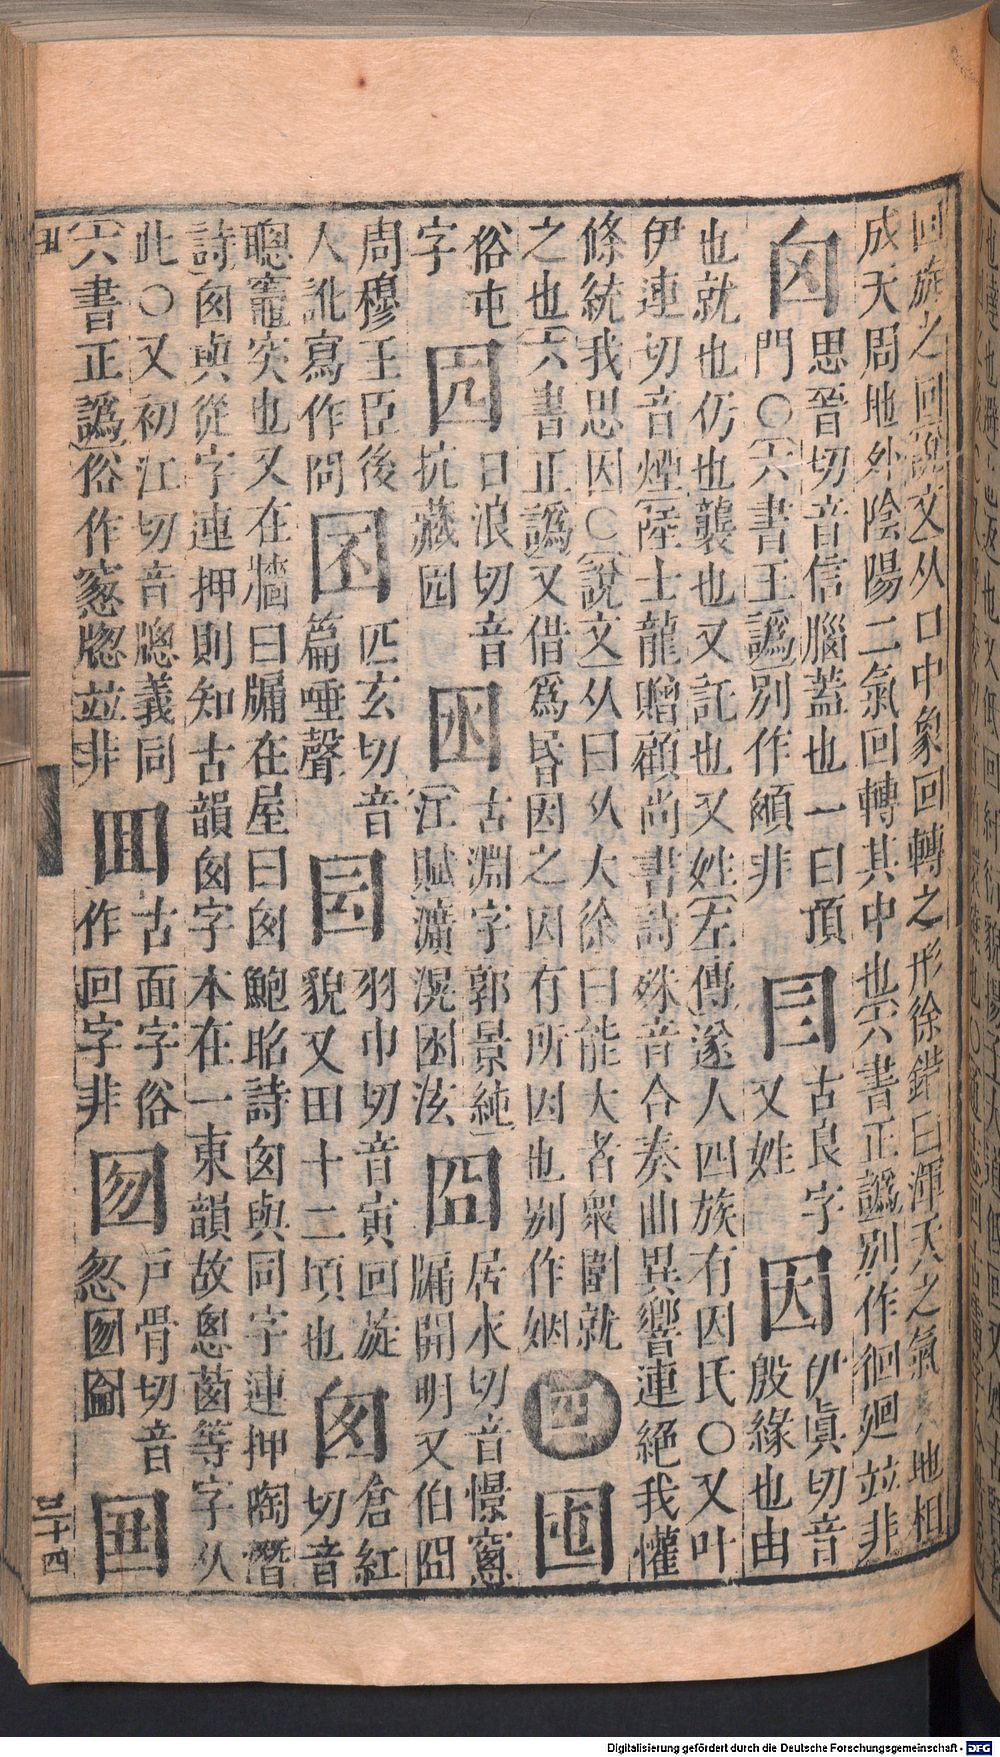 回族之回〔說文〕从口中象回轉之形徐鍇曰渾天之氣天地相
成天周地外陰陽二氣回轉其中也〔六書正譌〕別作徊迴竝非
囟 思晉切音信腦蓋也一曰頂門〇〔六書正譌〕別作顖非 古良字又姓 因 伊眞切音殷緣也由
也就也仍也襲也又託也又姓〔左傳〕遂人四族有因氏〇又叶
伊連切音煙〔陸士龍贈顧尚書詩〕殊音合奏曲異響連絕我懽
條統我思因〇〔說文〕从囗从大徐曰能大者衆圍就
之也〔六書正譌〕又借爲昏因之因有所因也別作姻
四
俗屯字 囥 日浪切音抗藏囥 囦 古淵字郭景純〔江賦〕瀇滉囦泫 囧 居永切音憬窻牖開明又伯囧
周穆王臣後人訛寫作冏 囨 匹玄切音篇唾聲 羽巾切音寅回旋貌又田十二頃也 囱 倉紅切音
聰竈突也又在牆曰牖在屋曰囱鮑昭詩囱與同字連押陶潛
詩囱與從字連押則知古韻囱字本在一東韻故悤等字从
此〇又初江切音牎義同〔六書正譌〕俗作窻牎竝非 囬 古面字俗作回字非 囫 戶骨切音忽囫圇
丑
三十四
Digitalisierung gefördert durch die Deutsche Forschungsgemeinschaft - DFG